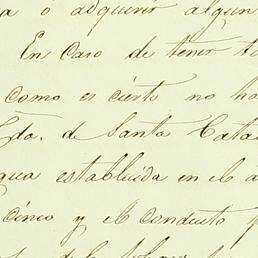 a o adquirir algun
En caso de tener
como es cierto no ha
Gda. de Santa Cata
gua establecida en el a
cinco y el conducto p